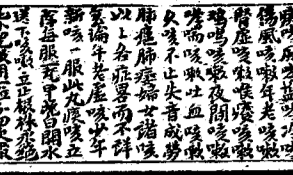 傷風咳嗽年老咳嗽
腎虛咳嗽喉癢咳嗽
鷄鳴咳嗽夜間咳嗽
哮喘咳嗽吐血咳嗽
久咳不止失音成勞
肺癰肺痿婦女諸咳
以上各症畧而不詳
無論年老虛咳少年
新咳一服此丸痰咳立
除每服壱甲薄白開水
送下咳嗽立止